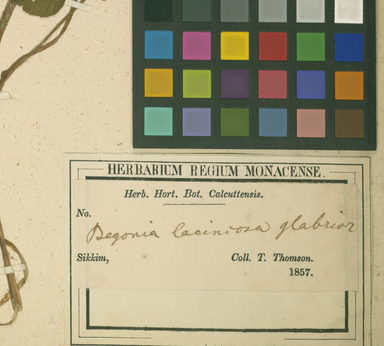 HERBARIUM REGIUM MONACENSE.
Herb. Hort. Bot. Calcuttensis.
No.
Begonia laciniosa glabrior
Sikkim, Coll. T. Thomson.
1857.